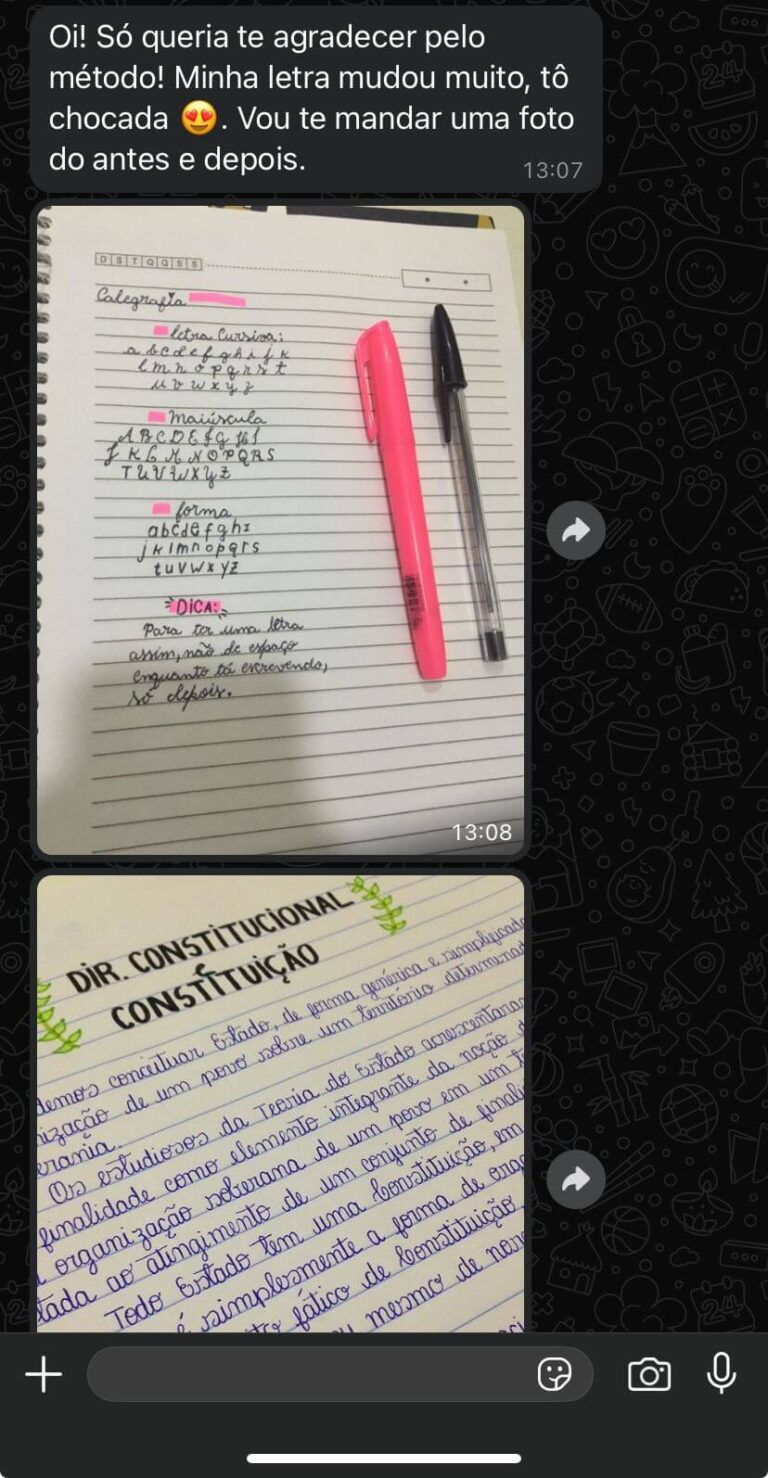 Oi! Só queria te agradecer pelo
método! Minha letra mudou muito, tô
chocada 😍. Vou te mandar uma foto
do antes e depois.
13:07
D S T Q Q S S
Calegrafia
letra Cursiva:
a b c d e f g h i j k
l m n o p q r s t
u v w x y z
Maiúscula
A B C D E F G H I
J K L M N O P Q R S
T U V W X Y Z
forma
a b c d e f g h i
j k l m n o p q r s
t u v w x y z
DICA:
Para ter uma letra
assim, não de espaço
enquanto tá escrevendo,
só depois.
13:08
DIR. CONSTITUCIONAL
CONSTITUIÇÃO
demos conceituar Estado, de forma genérica e simplificada
ização de um povo sobre um território determinad
erania.
Os estudiosos da Teoria do Estado acrescentaram
finalidade como elemento integrante da noção d
organização soberana de um povo em um t
tada ao atingimento de um conjunto de finali
Todo Estado tem uma Constituição, em
é simplesmente a forma de org
fático de Constituição
mesmo de nor